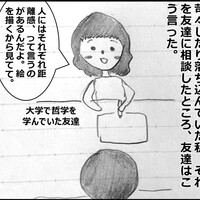 々したり落ち込んでいた私、それ
を友達に相談したところ、友達はこ
う言った。
人にはそれぞれ距
離感、って言うの
があるんだよ。絵
を描くから見てて。
大学で哲学を
学んでいた友達